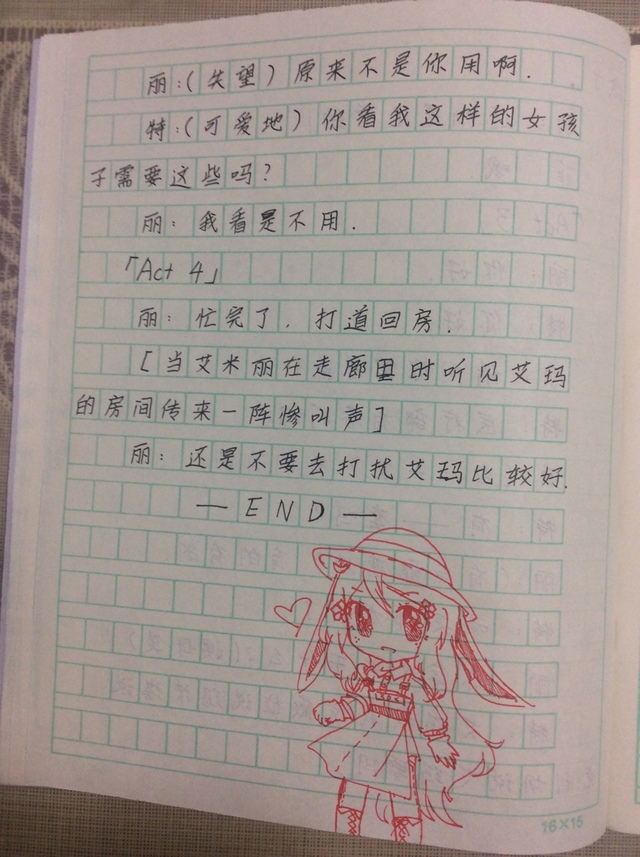 丽:(失望)原来不是你用啊.
特:(可爱地)你看我这样的女孩
子需要这些吗?
丽:我看是不用.
「Act 4」
丽:忙完了.打道回房.
[当艾米丽在走廊里时听见艾玛
的房间传来一阵惨叫声]
丽:还是不要去打扰艾玛比较好.
—END—
16×15